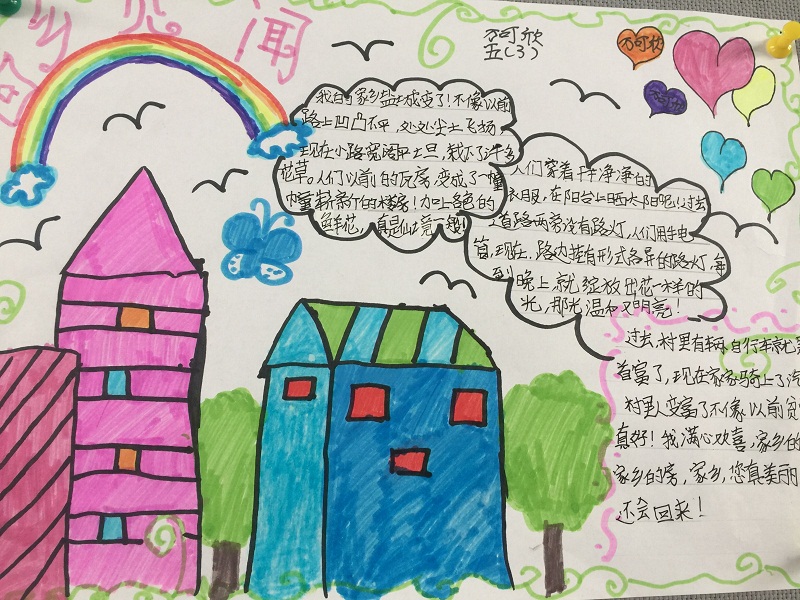 闻
万可欣
五(3)
万可欣
我的家乡盐城变了!不像以前
路上凹凸不平,处处尘土飞扬,
现在小路宽阔平坦,栽了许多
花草。人们以前的瓦房,变成了一幢
幢崭新的楼房!加上各色的
鲜花,真是仙境一般!
人们穿着干干净净的
衣服,在阳台上晒太阳呢!过去
道路两旁没有路灯,人们用手电
筒,现在,路边挂有形式各异的路灯,每
到晚上就绽放出花一样的
光,那光温和又明亮!
过去,村里有辆自行车就
首富了,现在家家骑上了汽
村里人变富了不像以前贫
真好!我满心欢喜,家乡的
家乡的房,家乡,您真美丽
还会回来!